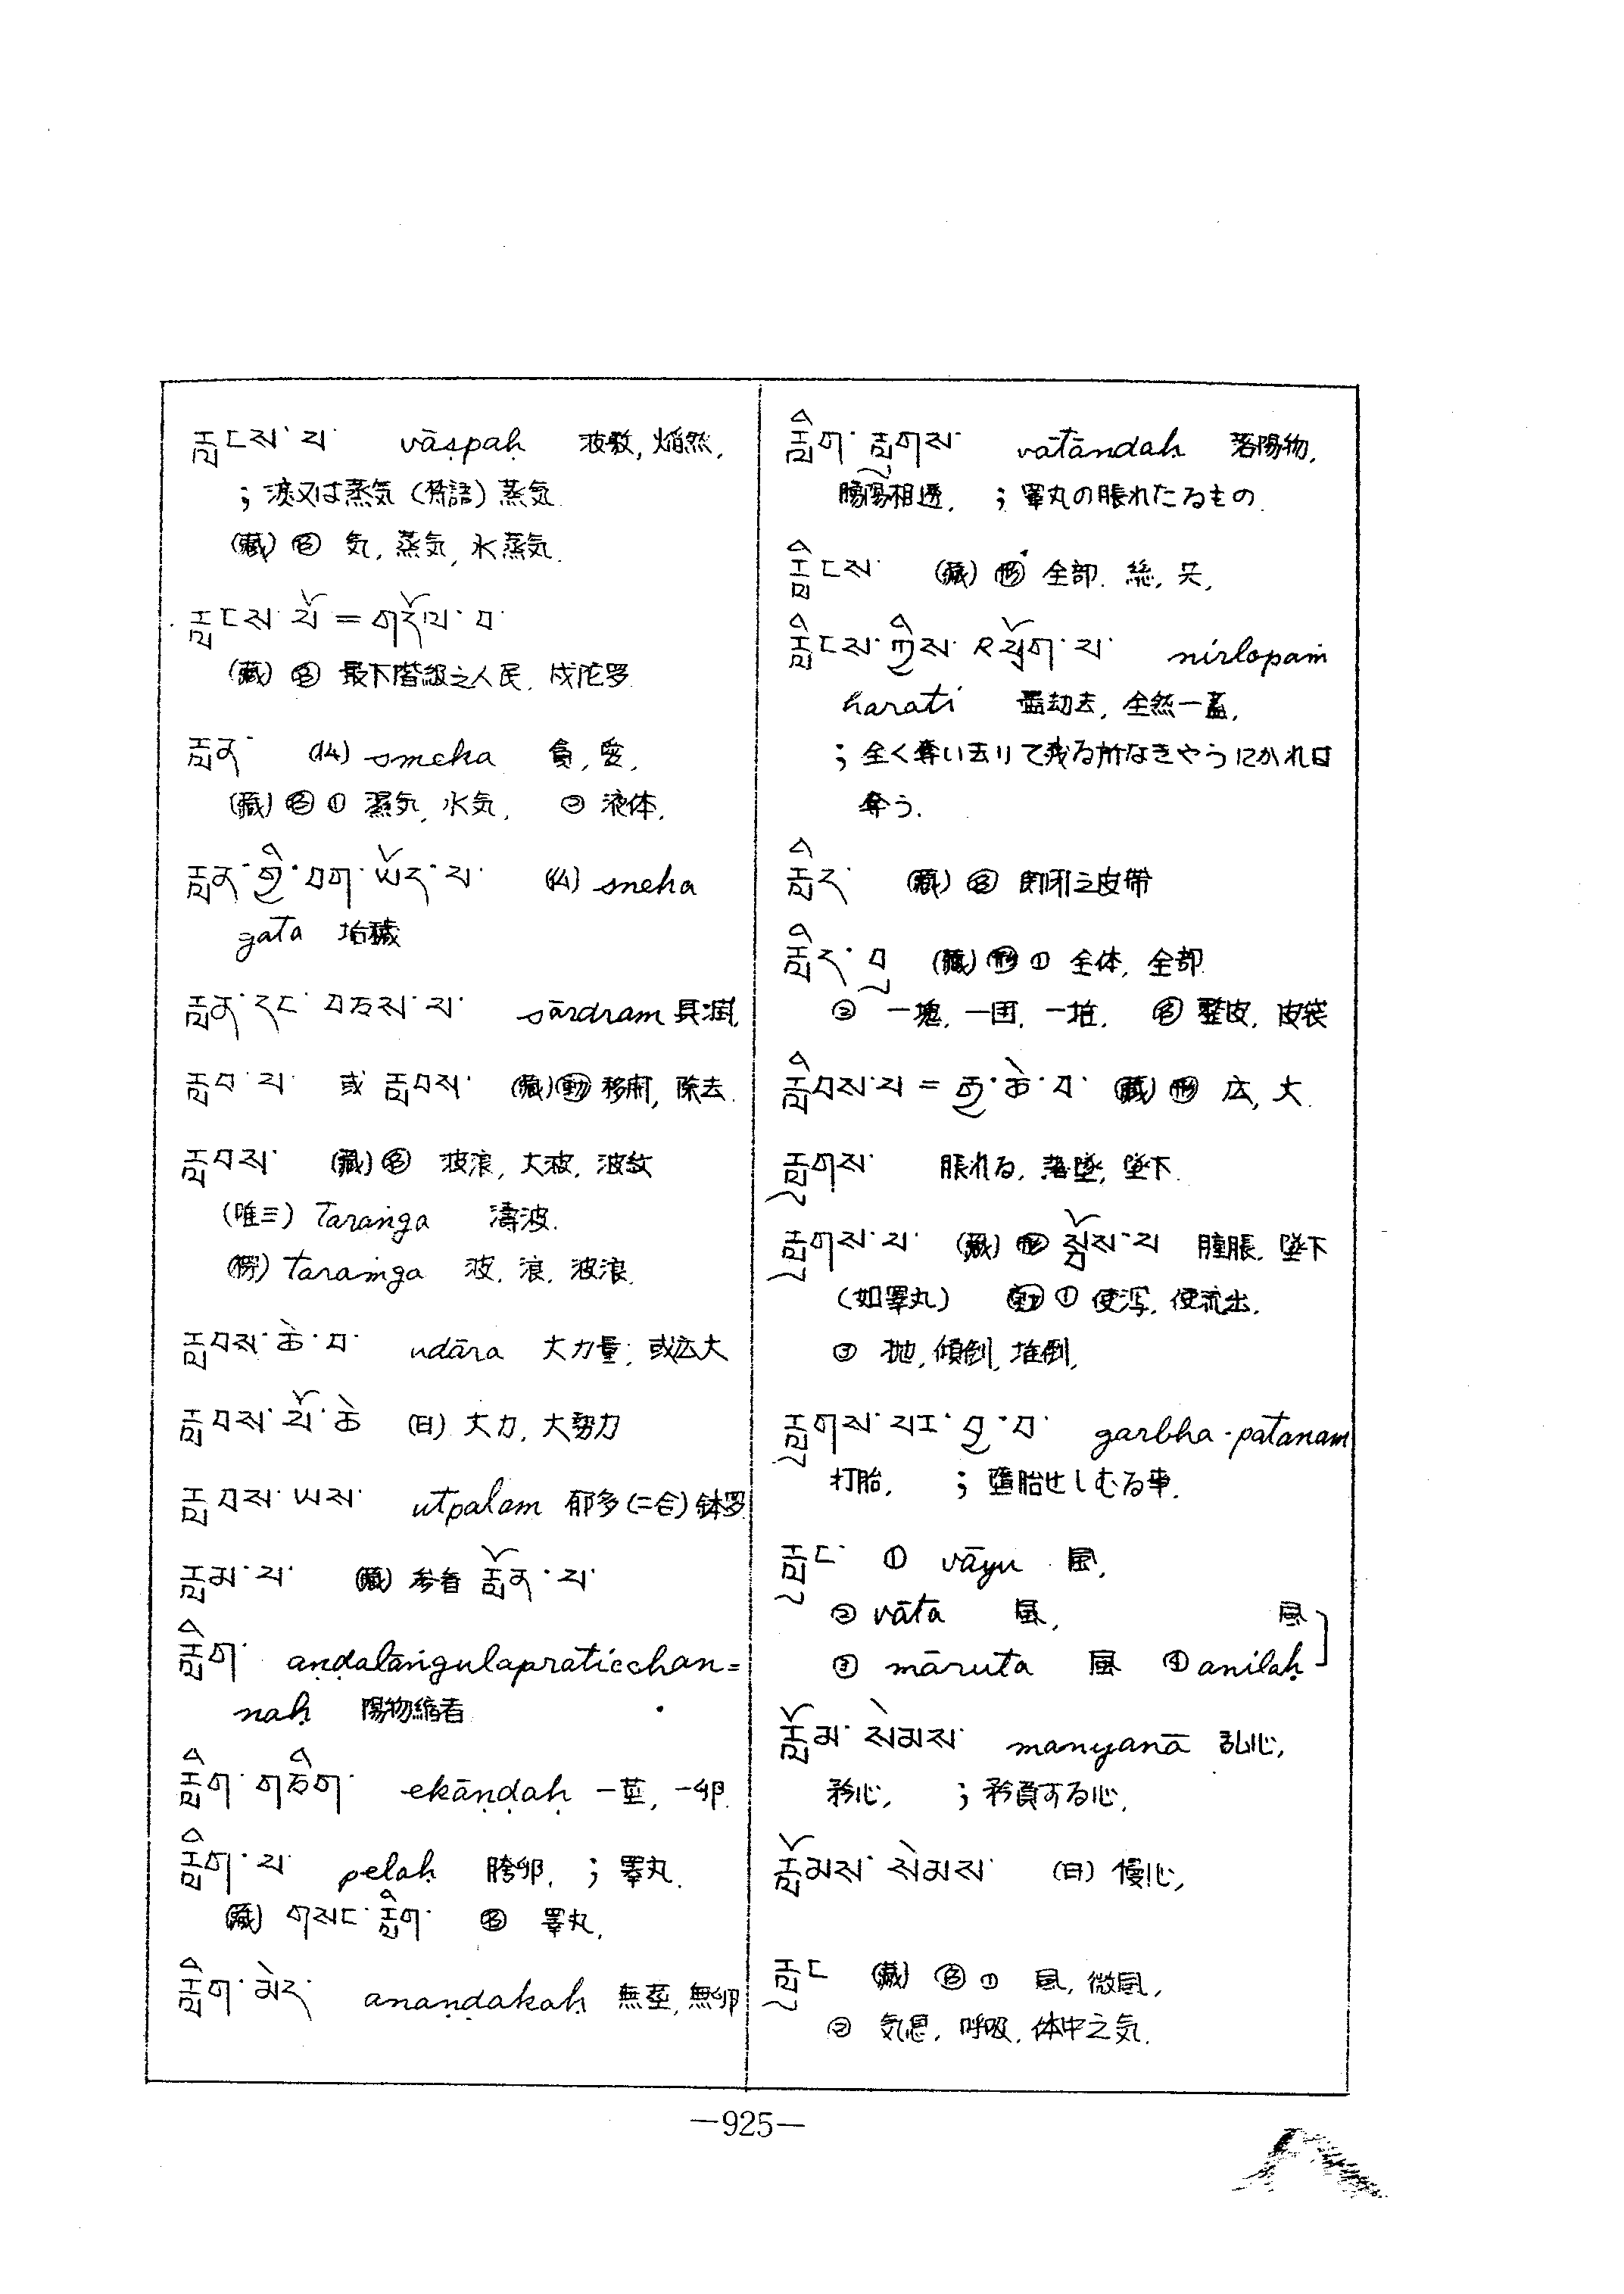 རླངས་པ་ vāṣpaḥ 波敎, 焔然,
; 涙又は蒸気 (梵語) 蒸気.
(蔵) 名 気, 蒸気, 水蒸気.
རླངས་པོ = གདོལ་བ་
(蔵) 名 最下階級之人民, 戍陀罗.
རླན་ (仏) smeka 貪, 愛,
(蔵) 名 ① 濕気, 水気, ② 液体.
རླན་གྱི་བག་ཡོད་པ་ (仏) sneha
gata
རླན་དང་བཅས་པ་ sārdram 具潤,
རླབ་པ་ 或 རླབས་ (蔵) 動 移開, 除去.
རླབས་ (蔵) 名 波浪, 大波, 波紋
(唯三) Taraṅga 濤波.
(楞) taraṁga 波, 浪, 波浪.
རླབས་ཆེ་བ་ udāra 大力量, 或広大
རླབས་པོ་ཆེ (日) 大力, 大勢力
རླབས་ཡས་ utpalam 郁多(二合)钵罗
རླམ་པ་ (蔵) 参看 རློན་པ་
རླིག་ aṇḍalāṅgulapraticchan=
naḥ 陽物縮者
རླིག་གཅིག་ ekāṇḍaḥ 一莖, 一卵.
རླིག་པ་ pelaḥ 胯卵, ; 睪丸.
(蔵) གསང་རླིག་ 名 睪丸,
རླིག་མེད་ anaṇḍakaḥ 無莖, 無卵
རླིག་རླུགས་ vātāndaḥ 落陽物,
相透, ; 睪丸の脹れたるもの.
རླིངས་ (蔵) 形 全部, 総, 共,
རླིངས་ཀྱིས་འཕྲོག་པ་ nirlopaṁ
harati 盡劫去, 全然一盖,
; 全く奪い去りて残る所なきやうにかれは
奪う.
རླིད་ (蔵) 名 之皮帶
རླིད་བུ (蔵) 形 ① 全体, 全部
② 一塊, 一団, 一堆, 名 整皮, 皮袋
རླིབས་པ = རྒྱ་ཆེ་བ་ (蔵) 形 広, 大.
རླུགས་ 脹れる, 落墜, 墜下.
རླུགས་པ་ (蔵) 形 སྐྲོས་པ 腫脹, 墜下
(如睪丸) 動 ① 使泻, 使流出,
② 抛, 傾倒, 堆倒,
རླུགས་པར་བྱ་བ་ garbha-pātanam
打胎, ; 墮胎せしむる事.
རླུང་ ① vāyu 風,
② vāta 風, 風
③ māruta 風 ④ anilaḥ
རློམ་སེམས་ manyanā 乱心,
矜心, ; 矜負する心,
རློམས་སེམས་ (日) 慢心,
རླུང (蔵) 名 ① 風, 微風,
② 気息, 呼吸, 体中之気.
—925—